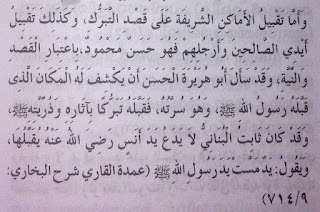 وَأَمَّا تَقْبِيلُ الأَمَاكِنِ الشَّرِيفَةِ عَلَى قَصْدِ التَّبَرُّكِ، وَكَذَلِكَ تَقْبِيلُ
أَيْدِي الصَّالِحِينَ وَأَرْجُلِهِم فَهُوَ حَسَنٌ مَحْمُودٌ، بِاعْتِبَارِ الْقَصْدِ
وَالنِّيَّةِ، وَقَدْ سَأَلَ أَبُو هُرَيْرَةَ الْحَسَنَ أَنْ يَكْشِفَ لَهُ الْمَكَانَ الَّذِى
قَبَّلَهُ رَسُولُ اللهِ ﷺ، وَهُوَ سُرَّتُهُ، فَقَبَّلَهُ تَبَرُّكًا بِآثَارِهِ وَذُرِّيَّتِهِ ﷺ،
وَقَدْ كَانَ ثَابِتُ الْبُنَانِيُّ لَا يَدَعُ يَدَ أَنَسٍ رَضِي اللهُ عَنْهُ يُقَبِّلُهَا،
وَيَقُولُ: يَدٌ مَسَّتْ يَدَ رَسُولِ اللهِ ﷺ (عمدة القاري شرح البخاري:
٧١٤/٩)